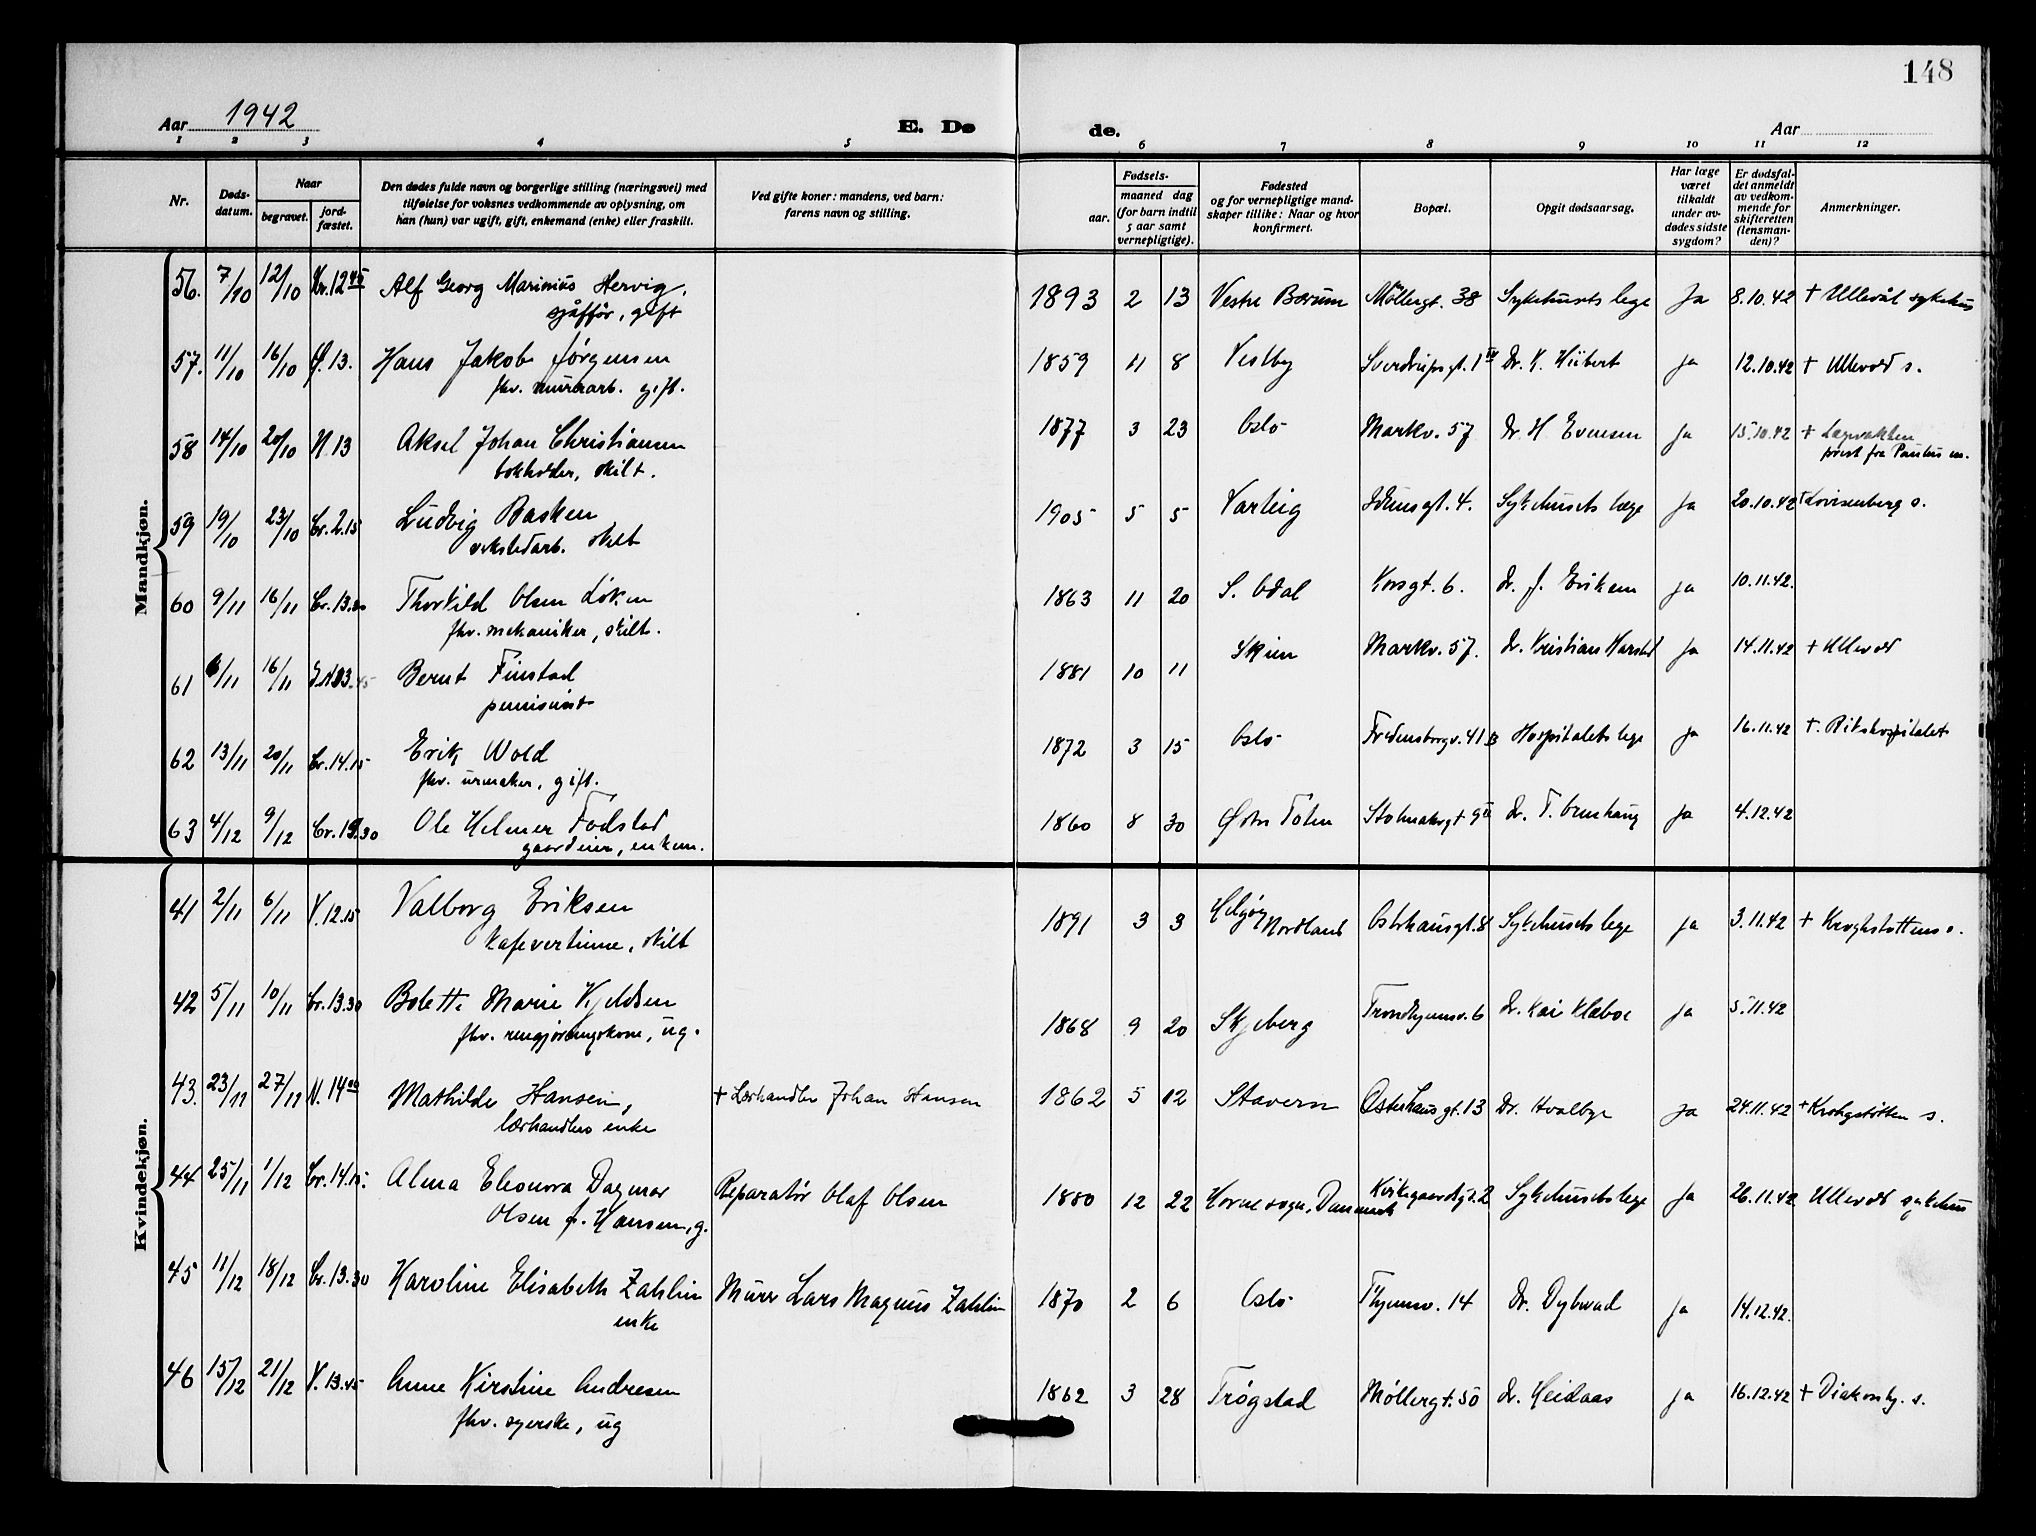 148
Aar 1942
E. Dø
de.
Aar
1 2 3 4 5 6 7 8 9 10 11 12
Nr.
Døds-
datum.
Naar
begravet.
jord-
fæstet.
Den dødes fulde navn og borgerlige stilling (næringsvei) med
tilføielse for voksnes vedkommende av oplysning, om
han (hun) var ugift, gift, enkemand (enke) eller fraskilt.
Ved gifte koner: mandens, ved barn:
farens navn og stilling.
Fødsels-
aar.
maaned dag
(for barn indtil
5 aar samt
vernepligtige).
Fødested
og for vernepligtige mand-
skaper tillike: Naar og hvor
konfirmert.
Bopæl.
Opgit dødsaarsag.
Har læge
været
tilkaldt
under av-
dødes sidste
sygdom?
Er dødsfal-
det anmeldt
av vedkom-
mende for
skifteretten
(lensman-
den)?
Anmerkninger.
Mandkjøn.
56. 7/10 12/10 Kr. 12 45 Alf Georg Marinius Hervig, 1893 2 13 Vestre Bærum Møllergt. 38 Sykehusets lege Ja 8.10.42 + Ullevål sykehus
sjåffør, gift
57. 11/10 16/10 13. Hans Jakob Jørgensen 1859 11 8 Vestby Sverdrupsgt. 1 Dr. K. Hübert ja 12.10.42 + Ullevål s.
fhv. murerarb. gift.
58 14/10 20/10 N 13 Aksel Johan Christiansen 1877 3 23 Oslo Markv. 57 Dr. H Evensen ja 15.10.42 + Legevakten
bokholder, skilt. prest fra Paulus m.
59 19/10 23/10 Cr. 2.15 Ludvig Basken 1905 5 5 Varteig Idunsgt. 4. Sykehusets læge ja 20.10.42 + Lovisenberg s.
verkstedarb. skilt
60 9/11 16/11 Cr. 13.30 Thorkild Olsen Løken 1863 11 20 S. Odal Korsgt. 6. Dr. J. Eriksen ja 10.11.42.
fhv. mekaniker, skilt.
61 /11 16/11 Bernt Finstad 1881 10 11 Skien Markv. 57. Dr. Kristian Harstad ja 14.11.42 + Ullevål
pensionist
62 13/11 20/11 Cr. 14.15 Erik Wold 1872 3 15 Oslo Fredensborgv. 41 B Hospitalets lege ja 16.11.42 +. Rikshospitalet
fhv. urmaker, gift.
63 4/12 9/12 Cr. .30 Ole Helmer Fodstad 1860 8 30 Østre Toten Stolmakergt 9 II Dr. T. Ornhaug ja 4.12.42
gaardeier, enkem.
Kvindekjøn.
41 2/11 6/11 V. 12.15 Valborg Eriksen 1891 3 3 Helgøy Nordland Osterhausgt. 8 Sykehusets lege ja 3.11.42 + Kroghstøttens s.
kafevertinne, skilt
42 5/11 10/11 Cr. 13.30 Bolette Marie Kjeldsen 1868 9 20 Skjeberg Trondhjemsv. 6 Dr. Kai Klæboe ja 5.11.42
fhv. rengjøringskone, ug.
43. 23/11 27/11 N. 14 00 Mathilde Hansen, + Lærhandler Johan Hansen 1862 5 12 Stavern Osterhausgt. 13 Dr. Hvalbye ja 24.11.42 + Krohgstøtten s.
lærhandlers enke
44 25/11 1/12 Cr. 14.15. Alma Eleonora Dagmar Reparatør Olaf Olsen 1880 12 22 Horne sogn, Danmark Kirkegaardsgt. 2 Sykehusets lege ja 26.11.42 Ullevål sykehus
Olsen f. Hansen, g.
45 11/12 18/12 Cr. 13.30 Karoline Elisabeth Zahlin Murer Lars Magnus Zahlin 1870 2 6 Oslo Thjemsv. 14 Dr. Dybwad ja 14.12.42.
enke
46 15/12 21/12 V. 13.45 Anne Kirstine Andresen 1862 3 28 Trøgstad Møllergt. 50 Dr. Heidaas ja 16.12.42 + Diakonhj. s.
fhv. syerske, ug